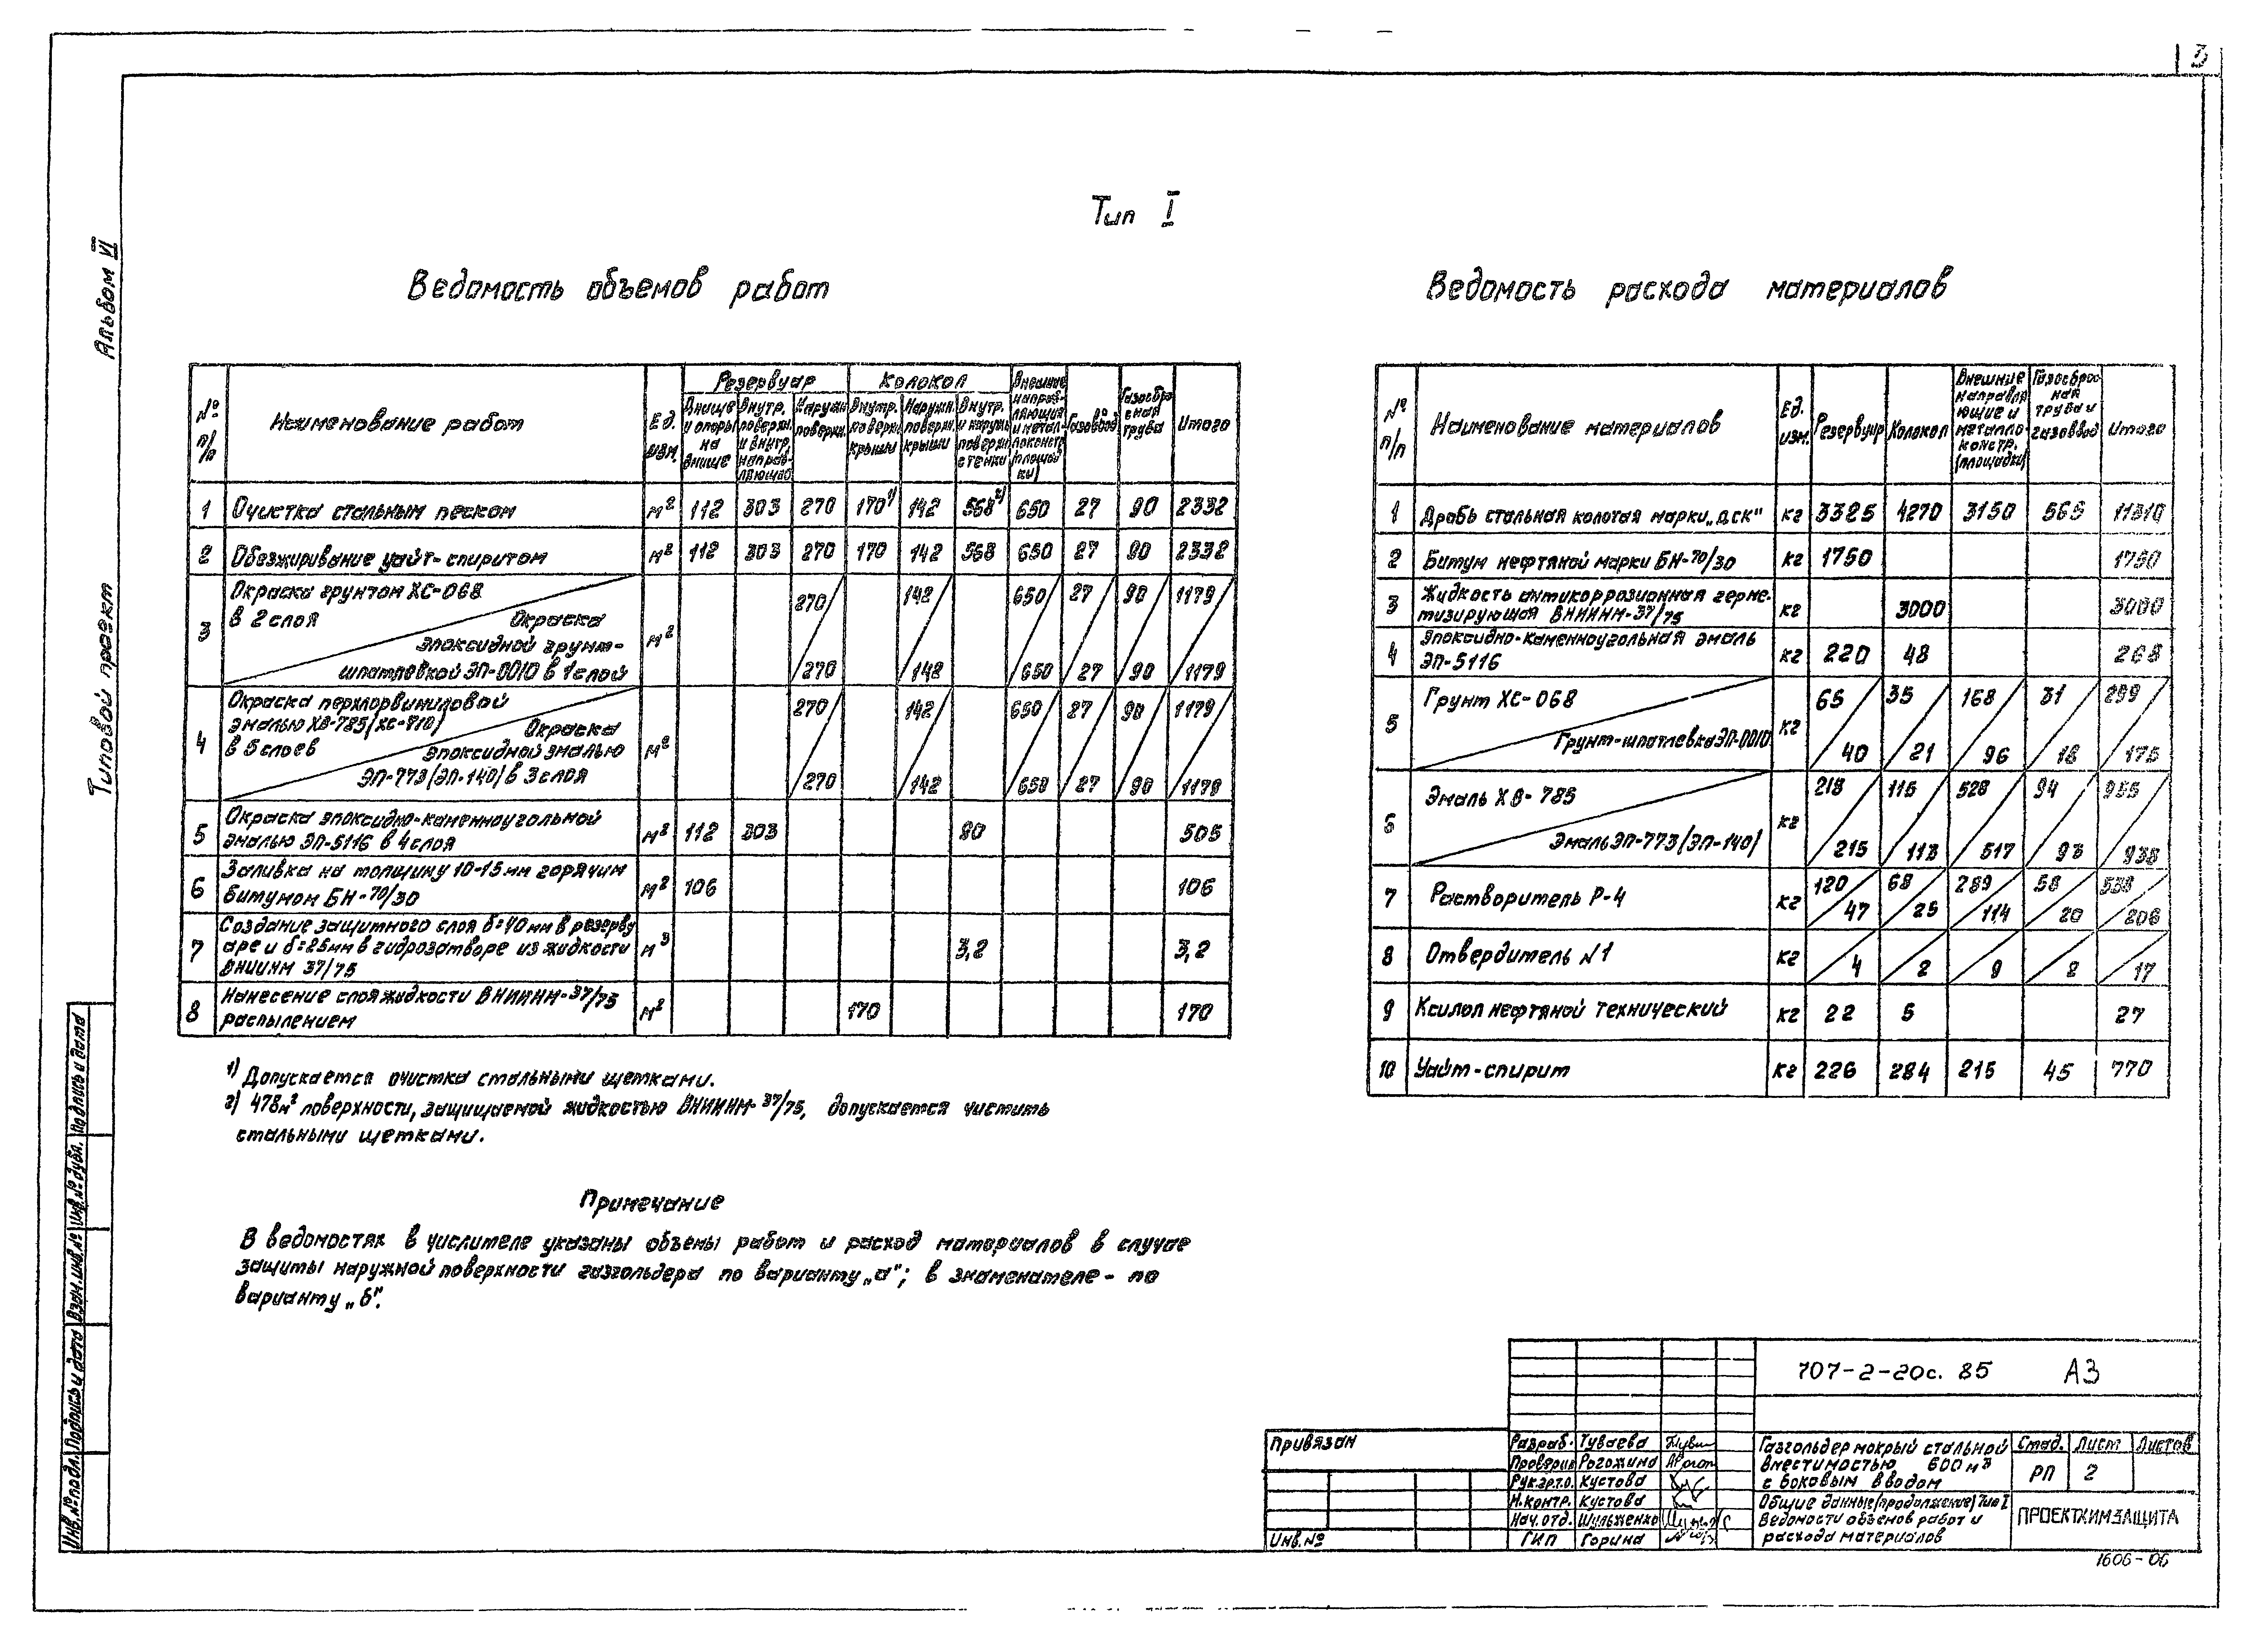 3
Альбом VI
Типовой проект
Тип I
Ведомость объемов работ
№ п/п | Наименование работ | Ед. изм. | Резервуар | Колокол | Внешние направляющие и металлоконстр. (площадки) | Газоввод | Газосбросная труба | Итого
Днище и опоры на днище | Внутр. поверхн. и внутр. направляющие | Наружн. поверхн. | Внутр. поверхн. крыши | Наружн. поверхн. крыши | Внутр. и наружн. поверхн. стенки
1 | Очистка стальным песком | м² | 112 | 303 | 270 | 170¹⁾ | 142 | 568²⁾ | 650 | 27 | 90 | 2332
2 | Обезжиривание уайт-спиритом | м² | 112 | 303 | 270 | 170 | 142 | 568 | 650 | 27 | 90 | 2332
3 | Окраска грунтом ХС-068 в 2 слоя / Окраска эпоксидной грунт-шпатлевкой ЭП-0010 в 1 слой | м² | 270/270 | 142/142 | 650/650 | 27/27 | 90/90 | 1179/1179
4 | Окраска перхлорвиниловой эмалью ХВ-785 (ХС-710) в 5 слоев / Окраска эпоксидной эмалью ЭП-773 (ЭП-140) в 3 слоя | м² | 270/270 | 142/142 | 650/650 | 27/27 | 90/90 | 1179/1179
5 | Окраска эпоксидно-каменноугольной эмалью ЭП-5116 в 4 слоя | м² | 112 | 303 | 90 | 505
6 | Заливка на толщину 10-15 мм горячим битумом БН-70/30 | м² | 106 | 106
7 | Создание защитного слоя δ=40 мм в резервуаре и δ=25 мм в гидрозатворе из жидкости ВНИИНМ 37/75 | м³ | 3,2 | 3,2
8 | Нанесение слоя жидкости ВНИИНМ-37/75 распылением | м² | 170 | 170
1) Допускается очистка стальными щетками.
2) 478м² поверхности, защищаемой жидкостью ВНИИНМ-37/75, допускается чистить
стальными щетками.
Примечание
В ведомостях в числителе указаны объемы работ и расход материалов в случае
защиты наружной поверхности газгольдера по варианту „а"; в знаменателе - по
варианту „б".
Ведомость расхода материалов
№ п/п | Наименование материалов | Ед. изм. | Резервуар | Колокол | Внешние направляющие и металлоконстр. (площадки) | Газосбросная труба и газоввод | Итого
1 | Дробь стальная колотая марки „ДСК" | кг | 3325 | 4270 | 3150 | 565 | 11310
2 | Битум нефтяной марки БН-70/30 | кг | 1750 | 1750
3 | Жидкость антикоррозионная герметизирующая ВНИИНМ-37/75 | кг | 3000 | 3000
4 | Эпоксидно-каменноугольная эмаль ЭП-5116 | кг | 220 | 48 | 268
5 | Грунт ХС-068 / Грунт-шпатлевка ЭП-0010 | кг | 65/40 | 35/21 | 168/96 | 31/18 | 299/175
6 | Эмаль ХВ-785 / Эмаль ЭП-773 (ЭП-140) | кг | 218/215 | 115/113 | 528/517 | 94/93 | 955/938
7 | Растворитель Р-4 | кг | 120/47 | 68/25 | 289/114 | 58/20 | 538/206
8 | Отвердитель №1 | кг | 4 | 2 | 9 | 2 | 17
9 | Ксилол нефтяной технический | кг | 22 | 5 | 27
10 | Уайт-спирит | кг | 226 | 284 | 215 | 45 | 770
707-2-20с. 85 АЗ
Привязан
Инв. №
Разраб. Туваева
Проверил Рогожина
Рук.гр.т.о. Кустова
Н.контр. Кустова
Нач. отд. Шульженко
ГИП Горина
Газгольдер мокрый стальной
вместимостью 600 м³
с боковым вводом
Стад. Лист Листов
РП 2
Общие данные (продолжение) Тип I
Ведомости объемов работ и
расхода материалов
ПРОЕКТХИМЗАЩИТА
1606-06
Инв.№подл. Подпись и дата Взам.инв.№ Инв.№дубл. Подпись и дата